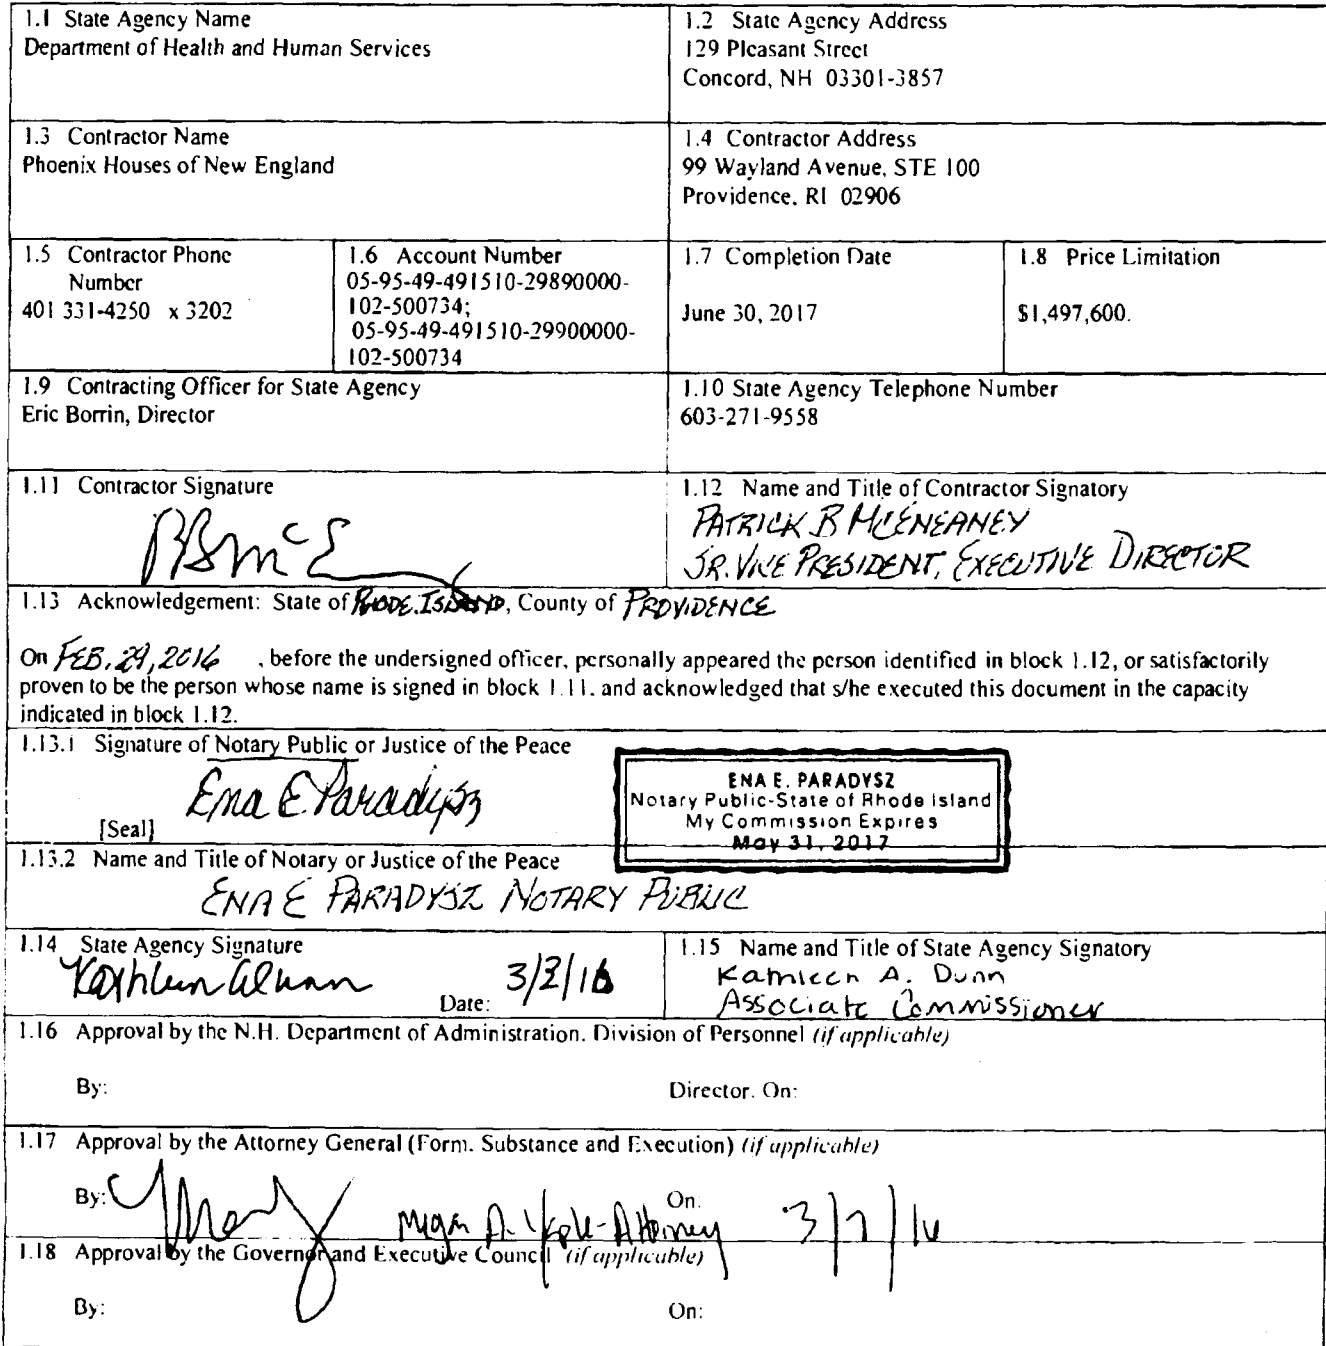 1.1 State Agency Name
Department of Health and Human Services
1.2 State Agency Address
129 Pleasant Street
Concord, NH 03301-3857
1.3 Contractor Name
Phoenix Houses of New England
1.4 Contractor Address
99 Wayland Avenue, STE 100
Providence, RI 02906
1.5 Contractor Phone
Number
401 331-4250 x 3202
1.6 Account Number
05-95-49-491510-29890000-
102-500734;
05-95-49-491510-29900000-
102-500734
1.7 Completion Date
June 30, 2017
1.8 Price Limitation
$1,497,600.
1.9 Contracting Officer for State Agency
Eric Borrin, Director
1.10 State Agency Telephone Number
603-271-9558
1.11 Contractor Signature
1.12 Name and Title of Contractor Signatory
PATRICK B MCENEANEY
SR. VICE PRESIDENT, EXECUTIVE DIRECTOR
1.13 Acknowledgement: State of RHODE ISLAND, County of PROVIDENCE
On FEB. 29, 2016 , before the undersigned officer, personally appeared the person identified in block 1.12, or satisfactorily
proven to be the person whose name is signed in block 1.11. and acknowledged that s/he executed this document in the capacity
indicated in block 1.12.
1.13.1 Signature of Notary Public or Justice of the Peace
Ena E Paradysz
[Seal]
ENA E. PARADYSZ
Notary Public-State of Rhode Island
My Commission Expires
May 31, 2017
1.13.2 Name and Title of Notary or Justice of the Peace
ENA E PARADYSZ NOTARY PUBLIC
1.14 State Agency Signature
Date: 3/3/16
1.15 Name and Title of State Agency Signatory
Kathleen A. Dunn
Associate Commissioner
1.16 Approval by the N.H. Department of Administration. Division of Personnel (if applicable)
By:
Director. On:
1.17 Approval by the Attorney General (Form. Substance and Execution) (if applicable)
By: Megan A. - Attorney
On: 3/7/16
1.18 Approval by the Governor and Executive Council (if applicable)
By:
On: